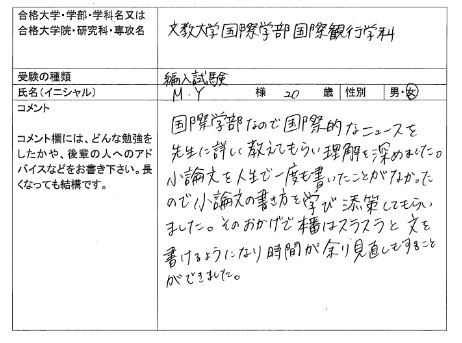 合格大学・学部・学科名又は
合格大学院・研究科・専攻名
文教大学国際学部国際観光学科
受験の種類
編入試験
氏名(イニシャル)
M.Y 様 20 歳 性別 男・女
コメント
コメント欄には、どんな勉強を
したかや、後輩の人へのアド
バイスなどをお書き下さい。長
くなっても結構です。
国際学部なので国際的なニュースを
先生に詳しく教えてもらい理解を深めました。
小論文を人生で一度も書いたことがなかった
ので小論文の書き方を学び添策してもらい
ました。そのおかげで本番はスラスラと文を
書けるようになり時間が余り見直しもすること
ができました。